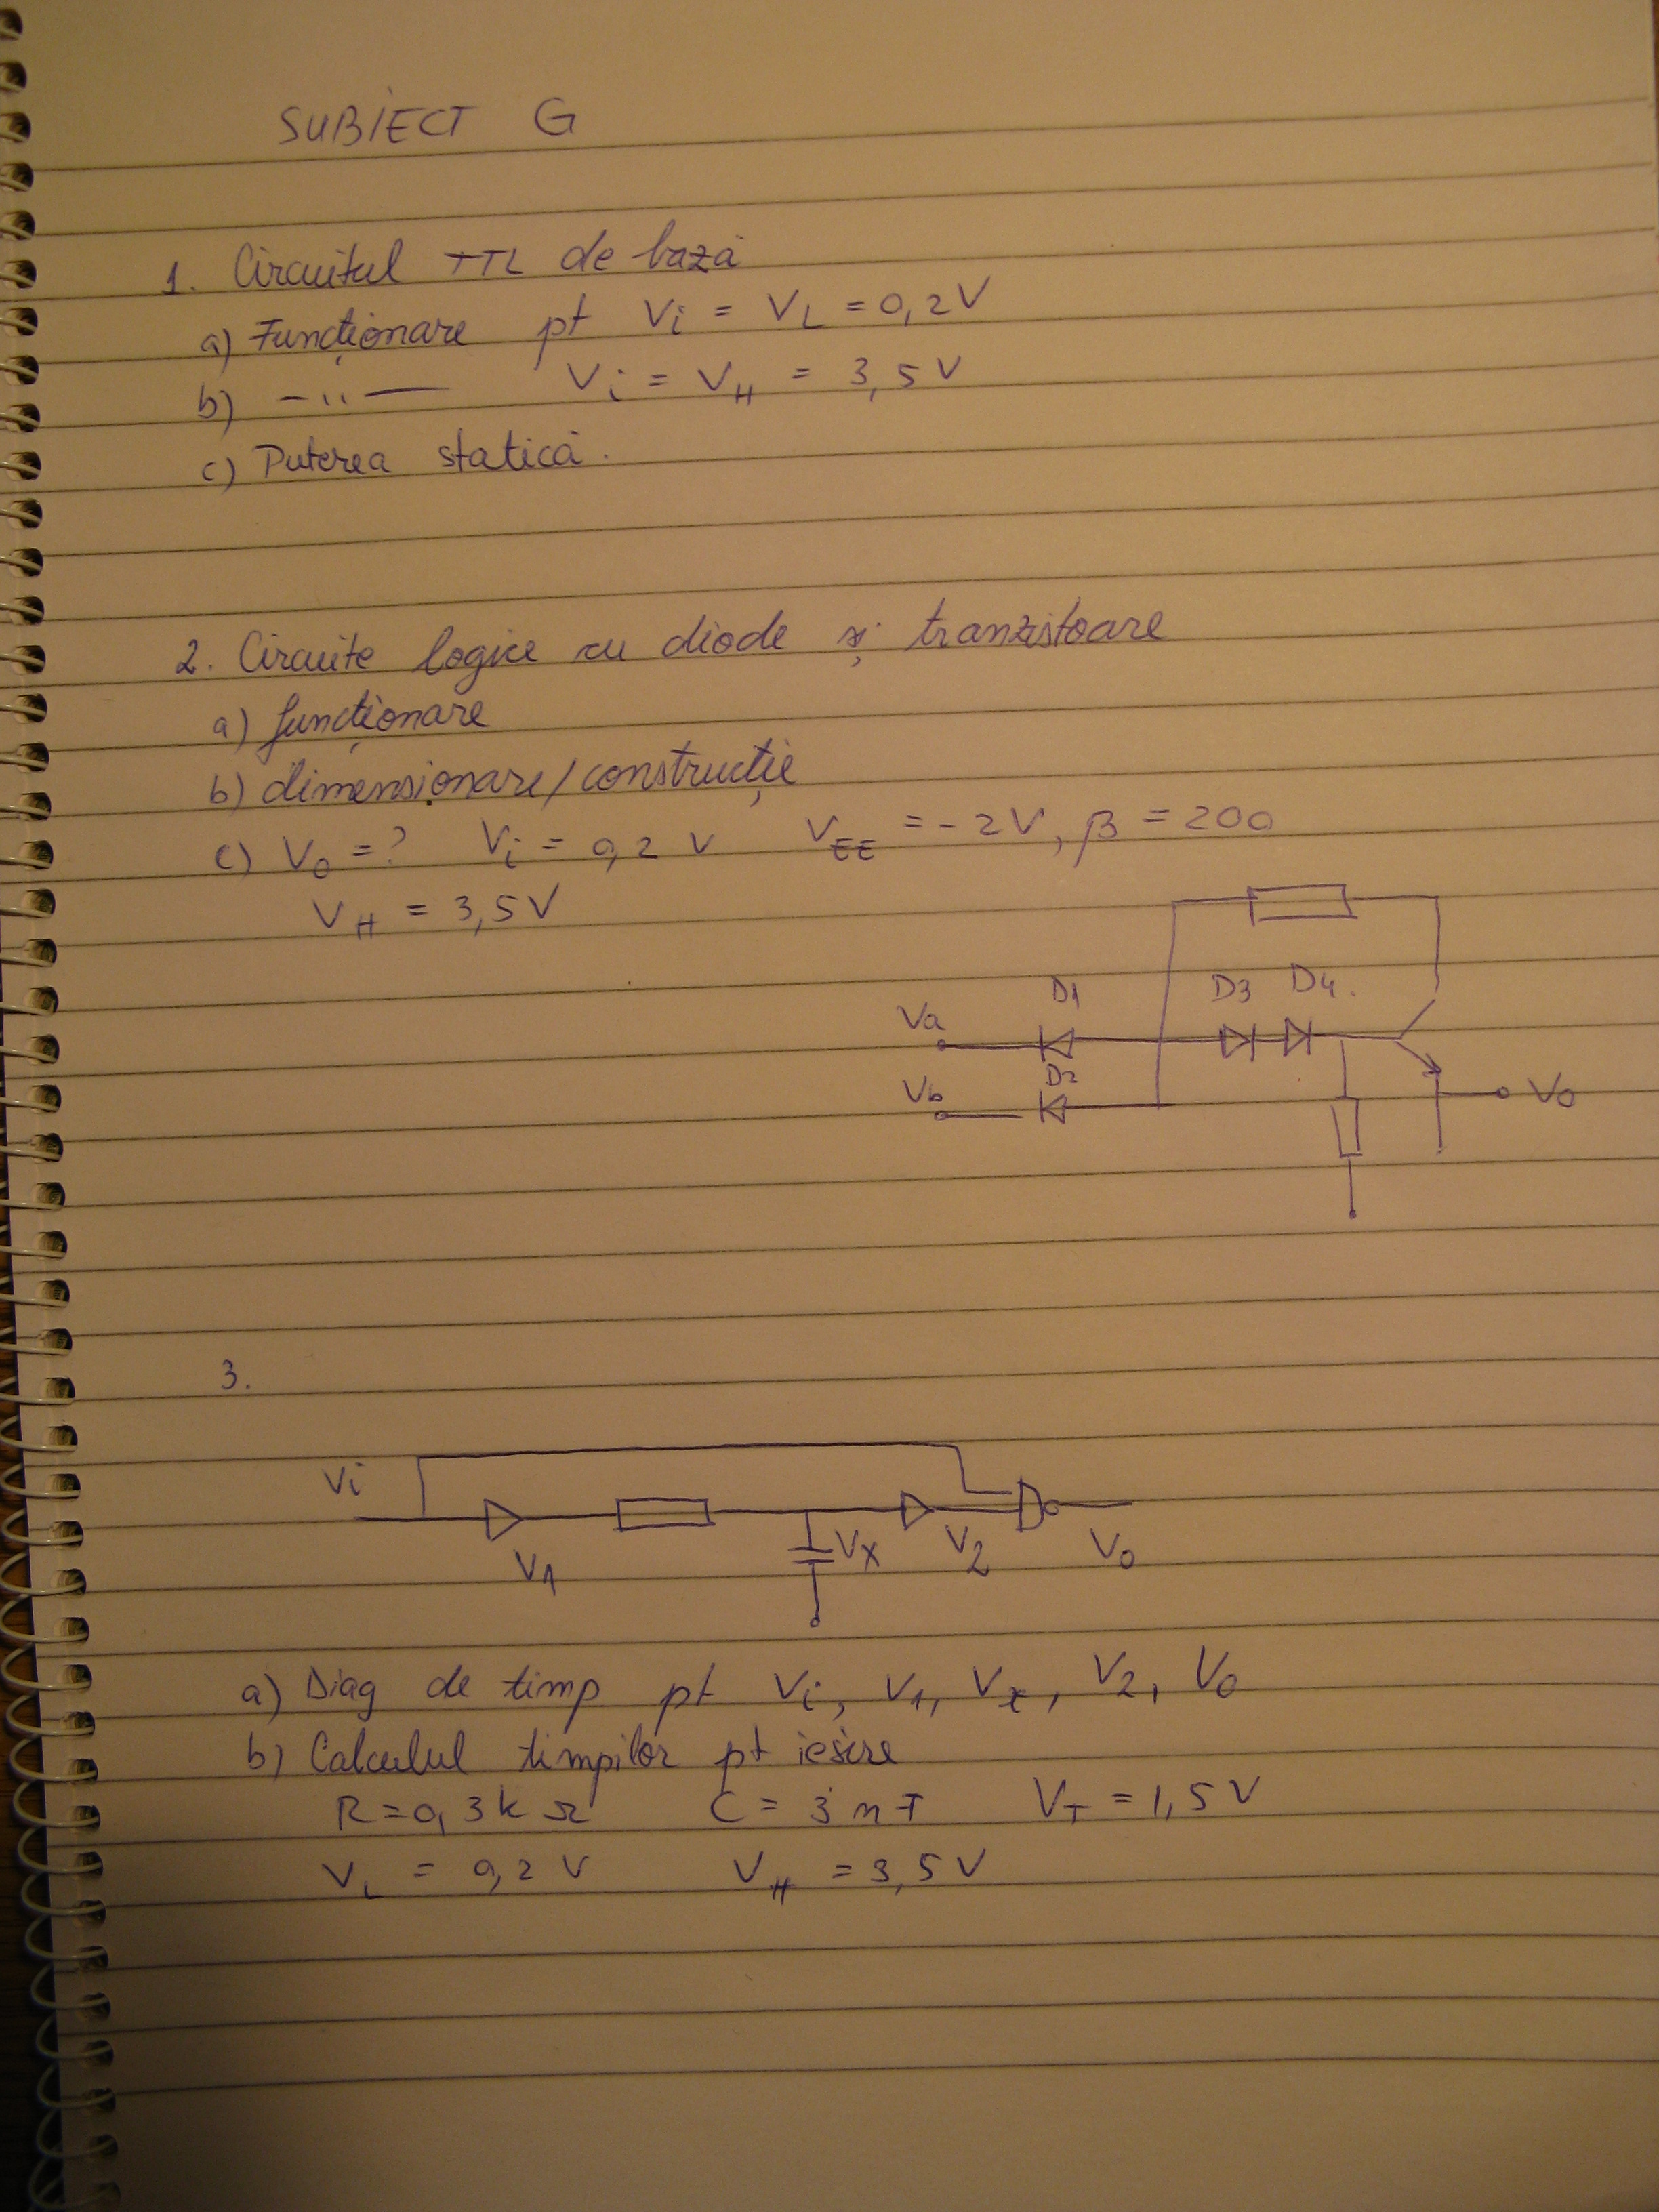 SUBIECT G
1. Circuitul TTL de bază
a) Funcționare pt Vi = VL = 0,2V
b) —"— Vi = VH = 3,5V
c) Puterea statică.
2. Circuite logice cu diode și tranzistoare
a) funcționare
b) dimensionare/construcție
c) Vo = ? Vi = 0,2 V VEE = -2V, β = 200
VH = 3,5V
D1 D3 D4.
Va
D2
Vb Vo
3.
Vi
V1 Vx V2 Vo
a) Diag de timp pt Vi, V1, Vx, V2, Vo
b) Calculul timpilor pt ieșire
R=0,3kΩ C = 3nF VT = 1,5V
VL = 0,2V VH = 3,5V